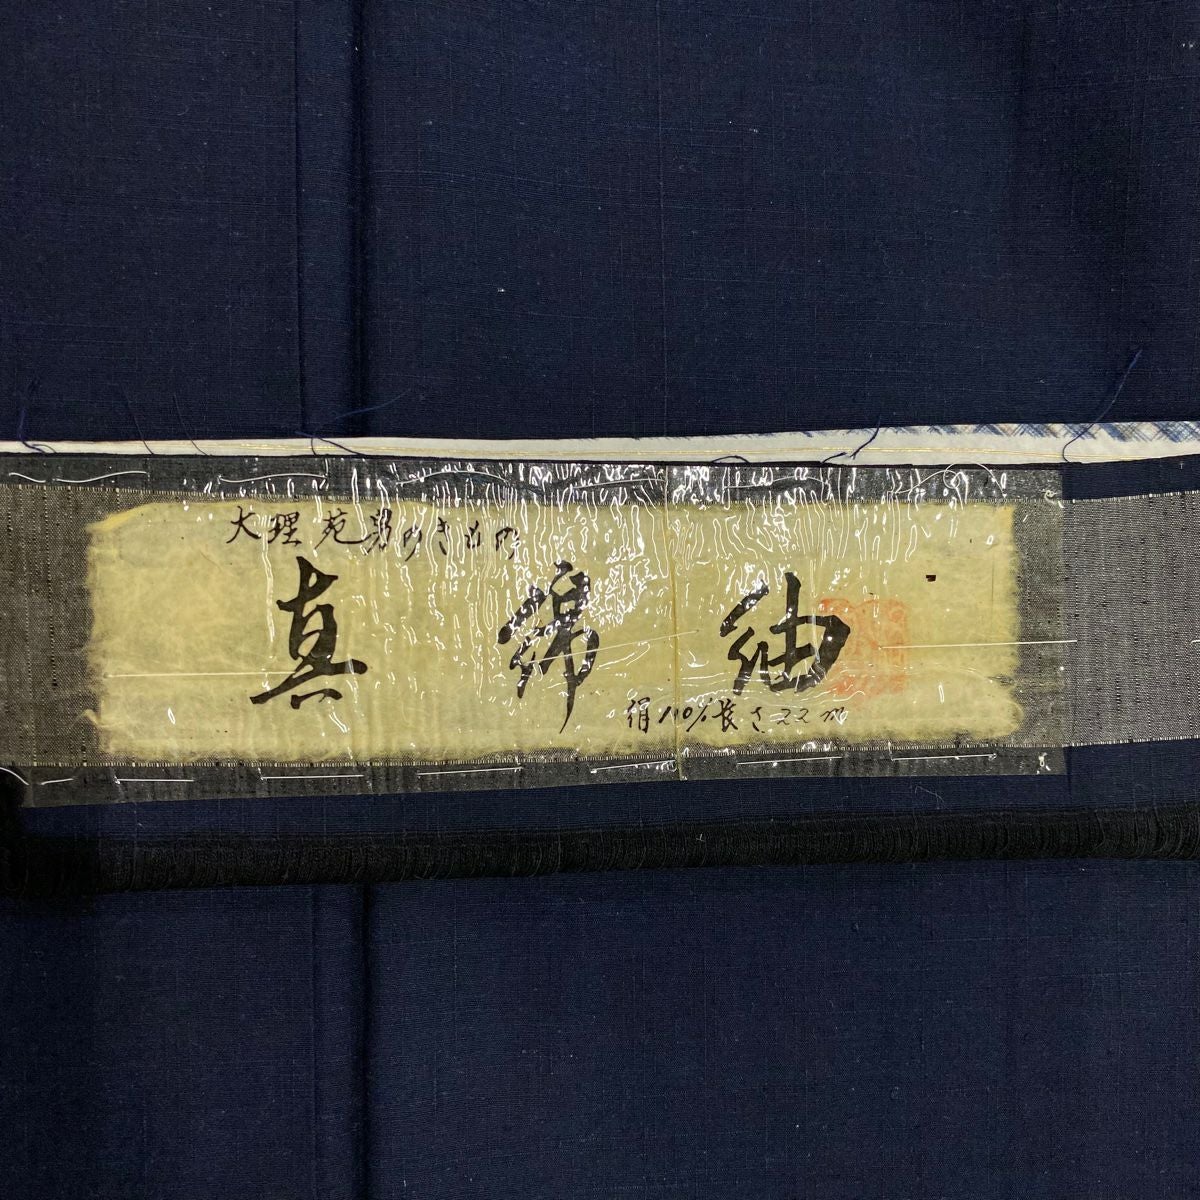 大理苑男のきもの
真綿紬
絹100%長さ22m